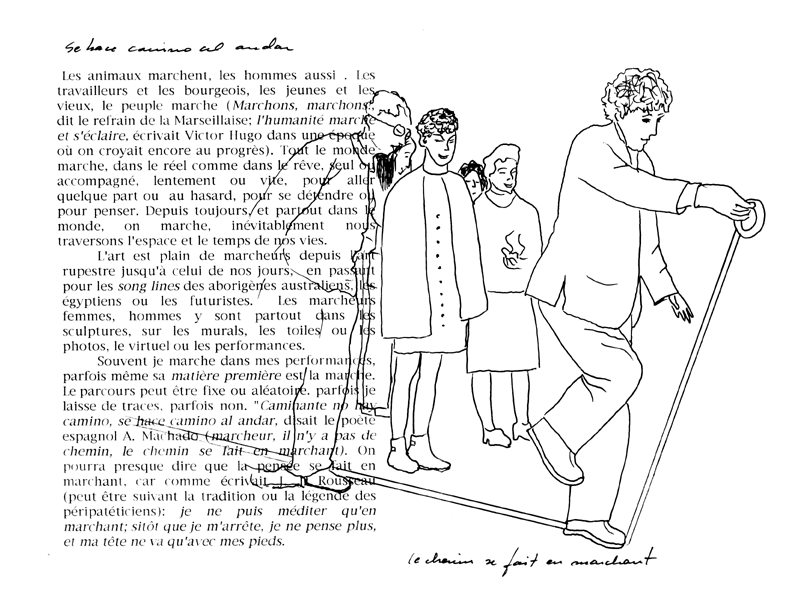 se hace camino al andar
Les animaux marchent, les hommes aussi . Les
travailleurs et les bourgeois, les jeunes et les
vieux, le peuple marche (Marchons, marchons!,
dit le refrain de la Marseillaise; l'humanité marche
et s'éclaire, écrivait Victor Hugo dans une époque
où on croyait encore au progrès). Tout le monde
marche, dans le réel comme dans le rêve, seul ou
accompagné, lentement ou vite, pour aller
quelque part ou au hasard, pour se détendre ou
pour penser. Depuis toujours, et partout dans le
monde, on marche, inévitablement nous
traversons l'espace et le temps de nos vies.
L'art est plain de marcheurs depuis l'art
rupestre jusqu'à celui de nos jours, en passant
pour les song lines des aborigènes australiens, les
égyptiens ou les futuristes. Les marcheurs
femmes, hommes y sont partout dans les
sculptures, sur les murals, les toiles ou les
photos, le virtuel ou les performances.
Souvent je marche dans mes performances,
parfois même sa matière première est la marche.
Le parcours peut être fixe ou aléatoire. parfois je
laisse de traces. parfois non. "Caminante no hay
camino, se hace camino al andar, disait le poète
espagnol A. Machado (marcheur, il n'y a pas de
chemin, le chemin se fait en marchant). On
pourra presque dire que la pensée se fait en
marchant, car comme écrivait J. J. Rousseau
(peut être suivant la tradition ou la légende des
péripatéticiens): je ne puis méditer qu'en
marchant; sitôt que je m'arrête, je ne pense plus,
et ma tête ne va qu'avec mes pieds.
le chemin se fait en marchant